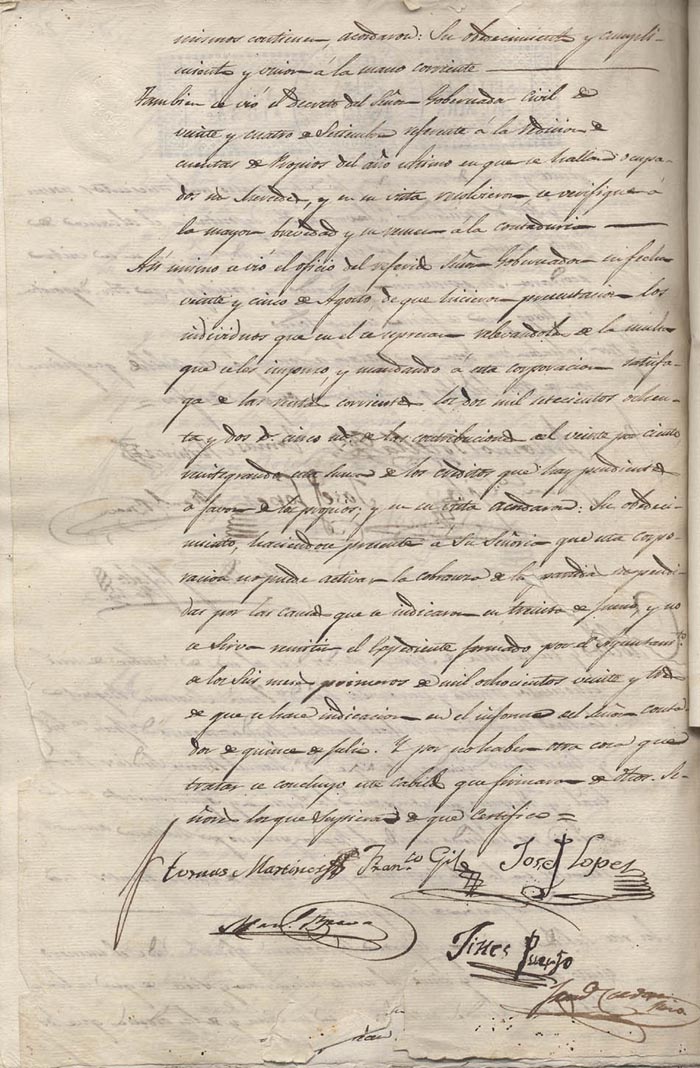 mismos contienen, acordaron: Su obedecimiento y cumpli-
miento y union á la mano corriente
Tambien se vió el Decreto del Señor Gobernador Civil de
veinte y cuatro de Setiembre referente á la Rendicion de
cuentas de Propios del año ultimo en que se hallan ocupa-
dos no y en su vista resolvieron, se verifique á
la mayor brevedad y se á la contaduria
Asi mismo se vió el oficio del referido Señor Gobernador su fecha
veinte y cinco de Agosto, de que hicieron presentacion los
individuos que en el se espresan relevandolos de la multa
que se les impuso, y mandando á esta corporacion satisfa-
ga de las rentas corrientes los dos mil setecientos ochen-
ta y dos r. cinco m. de las contribuciones del veinte por ciento
reintegrando esta suma de los creditos que hay pendientes
á favor de los propios; y en su vista acordaron: Su obedeci-
miento, haciendose presente á Su Señoria que esta corpo-
racion no puede activar la cobranza de las
das por las causas que se indicaron en treinta de y no
se sirve remitir el Espediente formado por el Ayuntam.to
de los Seis meses primeros de mil ochocientos veinte y tres
de que se hace indicacion en el informe del Señor Conta-
dor de quince de Julio. Y por no haber otra cosa que
tratar se concluyó este Cabildo que firmaron de Dhos. Se-
ñores los que supieron de que Certifico =
Tomas Martinez Fran.co Gil Josef Lopez
Man.l Bravo
Jines Puerto